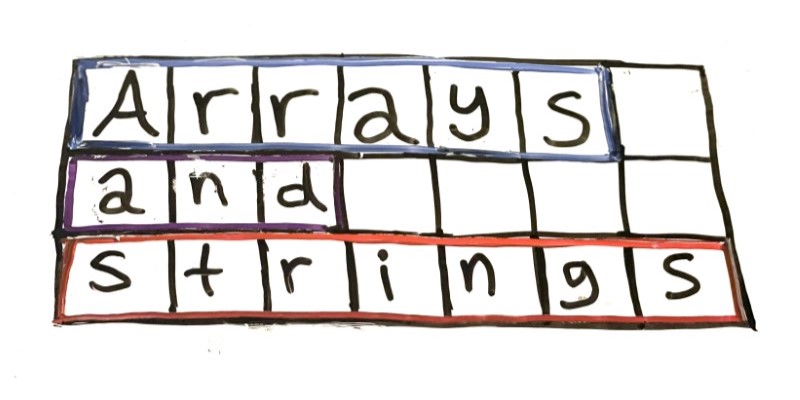 Arrays
and
strings